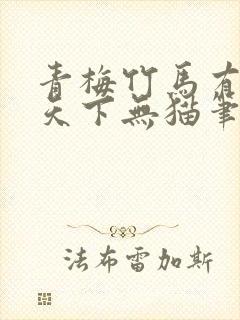 青梅竹馬有
天下無猫筆
法布雷加斯